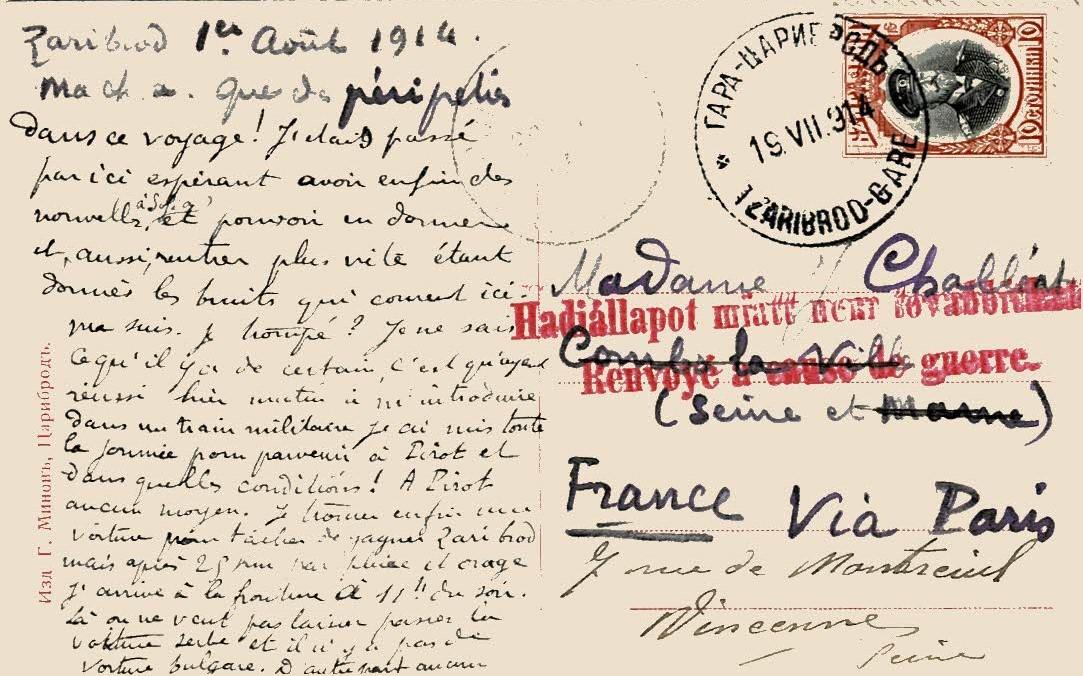 Zaribrod 1er Août 1914.
Ma ch a. Que de péripéties
dans ce voyage! J'étais passé
par ici espérant avoir enfin des
nouvelles, à Sofia, et pouvoir en donner
et, aussi, rentrer plus vite étant
donnés les bruits qui courent ici.
me suis. je trompé? Je ne sais
Ce qu'il y a de certain, c'est qu'ayant
réussi hier matin à m'introduire
dans un train militaire j'ai mis toute
la journée pour parvenir à Pirot et
dans quelles conditions! A Pirot
aucun moyen. Je trouve enfin une
voiture pour tacher de gagner Zaribrod
mais après 25 km par pluie et orage
j'arrive à la frontière à 11h du soir.
Là on ne veut pas laisser passer la
voiture serbe et il n'y a pas de
voiture bulgare. D'autre part aucun
Изд. Г. Миновъ, Царибродъ.
ГАРА-ЦАРИБРОДЪ
19.VII.914
TZARIBROD-GARE
10 СТОТИНКИ 10
Madame Chabléat
Hadiállapot miatt nem továbbítható
Combs la Ville
Renvoyé à cause de guerre.
(Seine et Marne)
France Via Paris
7 rue de Montreuil
Vincennes
Seine